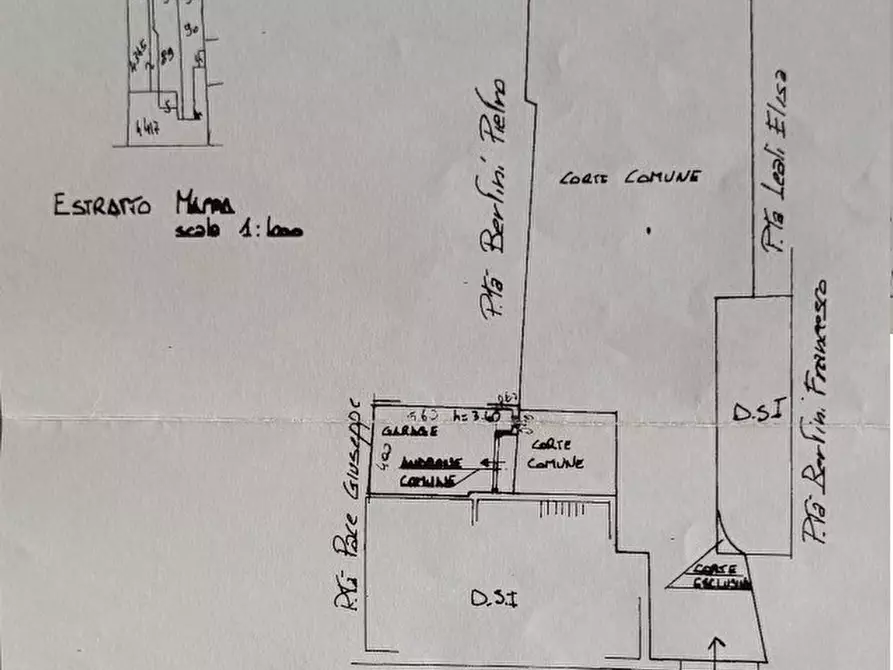 90
89
4417
ESTRATTO MAPPA
scala 1:1000
P.tà Berlini Pietro
CORTE COMUNE
P.tà Leali Elisa
P.tà Berlini Francesco
D.S.I
P.tà Pace Giuseppe
5.60 h=3.60
GARAGE
4.00
ANDRONE
COMUNE
CORTE
COMUNE
CORTE
ESCLUSIVA
D.S.I